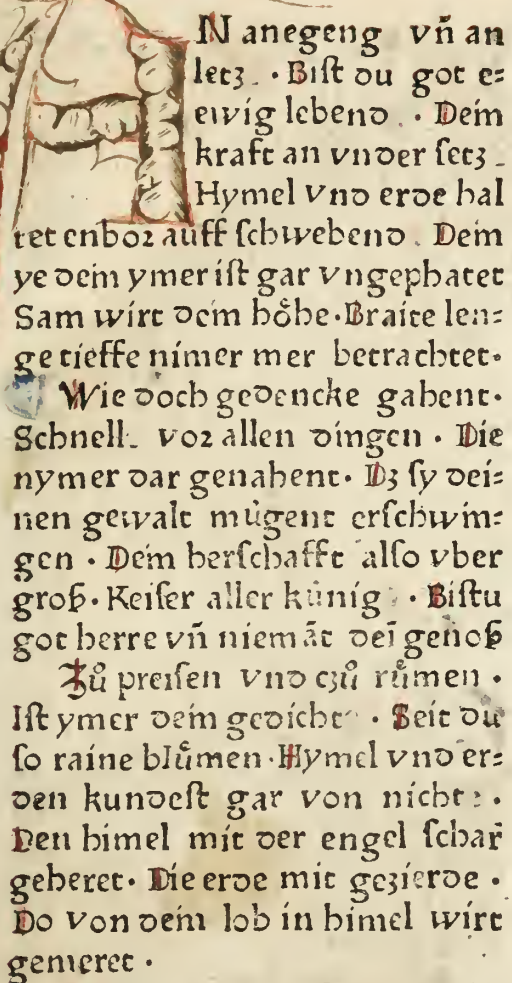 AN anegeng vn̄ an
letz. · Bist du got e⸗
ewig lebend. · Dein
kraft an vnder setz.
Hymel vnd erde hal
tet enbor auff schwebend. Dein
ye dein ymer ist gar vngephatet
Sam wirt dein hoͤhe · Braite len⸗
ge tieffe nimer mer betrachtet ·
Wie doch gedencke gahent ·
Schnell. vor allen dingen · Die
nymer dar genahent · Dz sy dei⸗
nen gewalt muͤgent erschwin⸗
gen · Dein herschafft also vber
groß · Keiser aller kuͤnig · Bistu
got herre vn̄ niemāt deī genoß
Zuͦ preisen vnd czuͦ ruͦmen ·
Ist ymer dein gedicht · Seit du
so raine bluͦmen · Hymel vnd er⸗
den kundest gar von nicht: ·
Den himel mit der engel schar̄
geheret · Die erde mit gezierde ·
Do von dein lob in himel wirt
gemeret ·